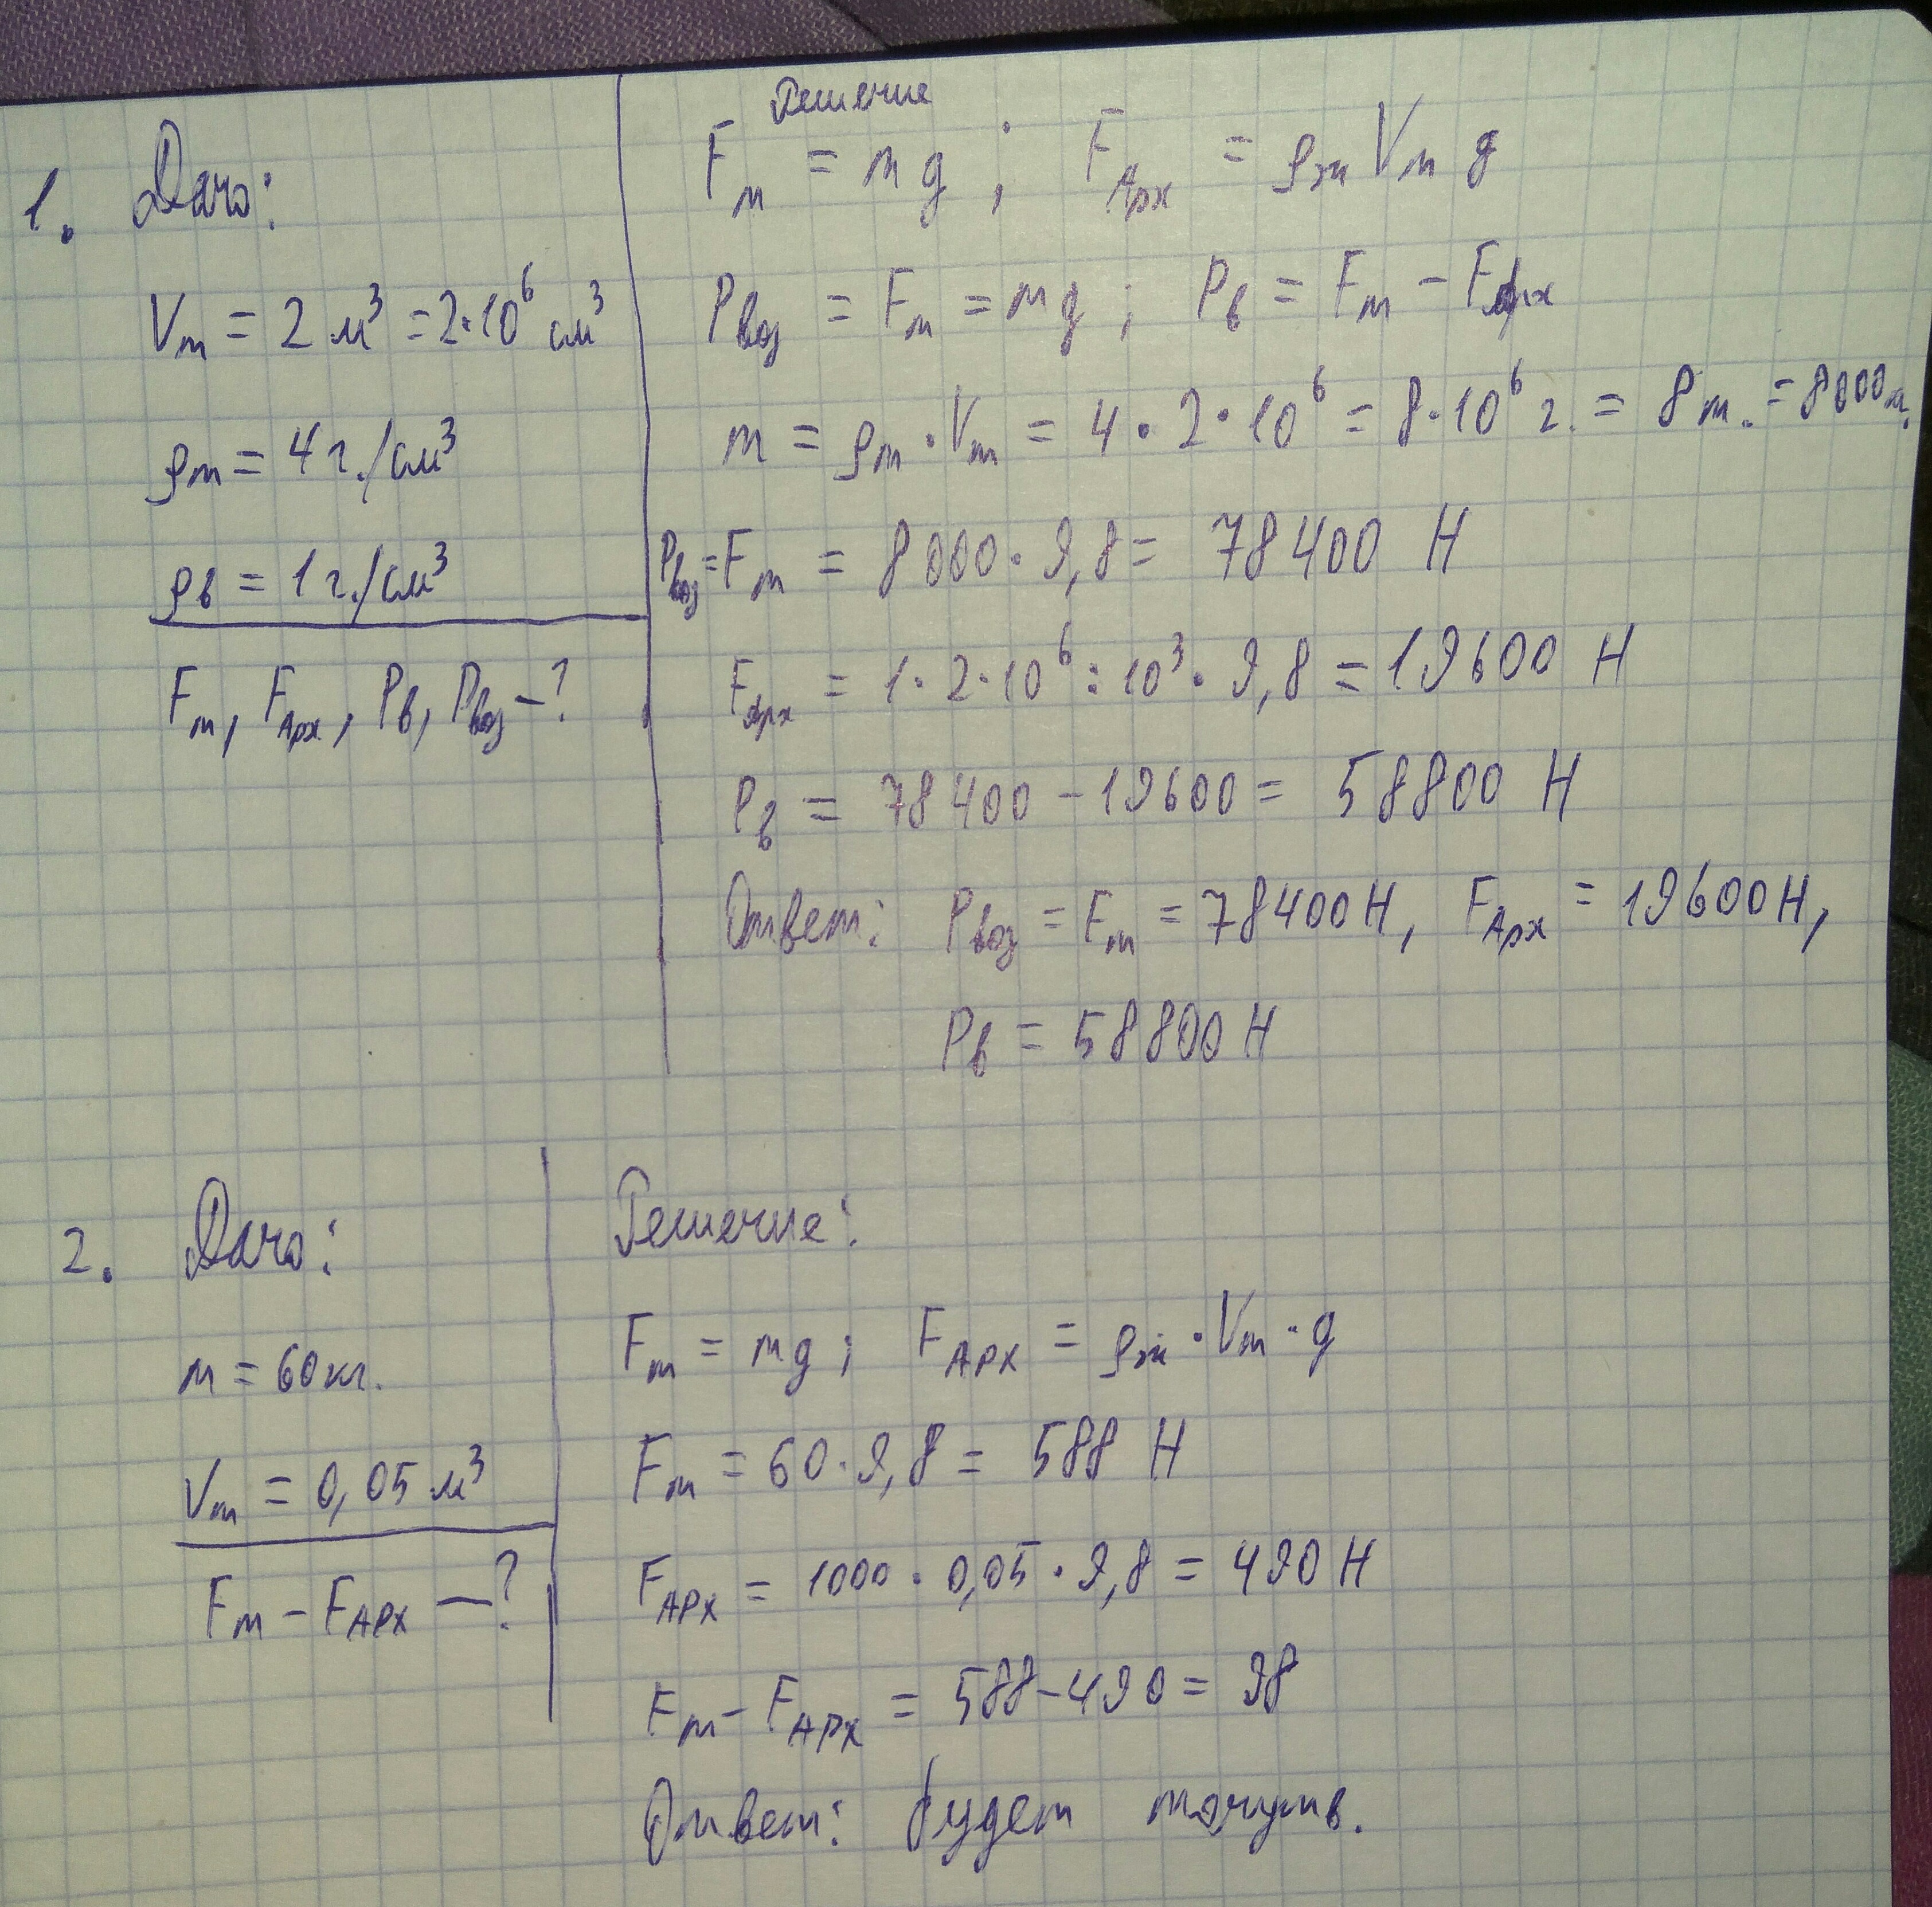 1. Дано:
Vт = 2 м³ = 2·10⁶ см³
ρт = 4 г./см³
ρв = 1 г./см³
Fт, FАрх, Pв, Pвоз – ?
Решение
Fт = mg ; FАрх = ρж Vт g
Pвоз = Fт = mg ; Pв = Fт – FАрх
m = ρт · Vт = 4 · 2 · 10⁶ = 8 · 10⁶ г. = 8 т. = 8000
Pвоз = Fт = 8000 · 9,8 = 78400 Н
FАрх = 1 · 2 · 10⁶ : 10³ · 9,8 = 19600 Н
Pв = 78400 – 19600 = 58800 Н
Ответ: Pвоз = Fт = 78400 Н, FАрх = 19600 Н,
Pв = 58800 Н
2. Дано:
m = 60 кг.
Vт = 0,05 м³
Fт – FАРХ – ?
Решение:
Fт = mg ; FАРХ = ρж · Vт · g
Fт = 60 · 9,8 = 588 Н
FАРХ = 1000 · 0,05 · 9,8 = 490 Н
Fт – FАРХ = 588 – 490 = 98
Ответ: будет тонуть.